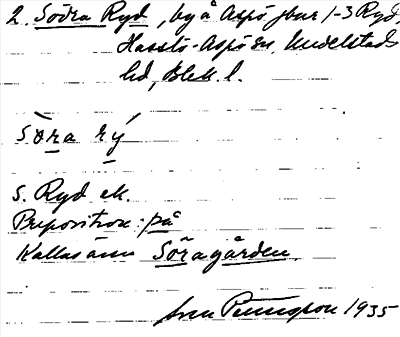 2. Södra Ryd, by å Aspö jbnr 1-3 Ryd,
Hasslö-Aspö sn, Medelstads
hd, Blek. l.
sö̀ra rý
S. Ryd ek.
Preposition: på
Kallas även Söragården.
Sven 1935